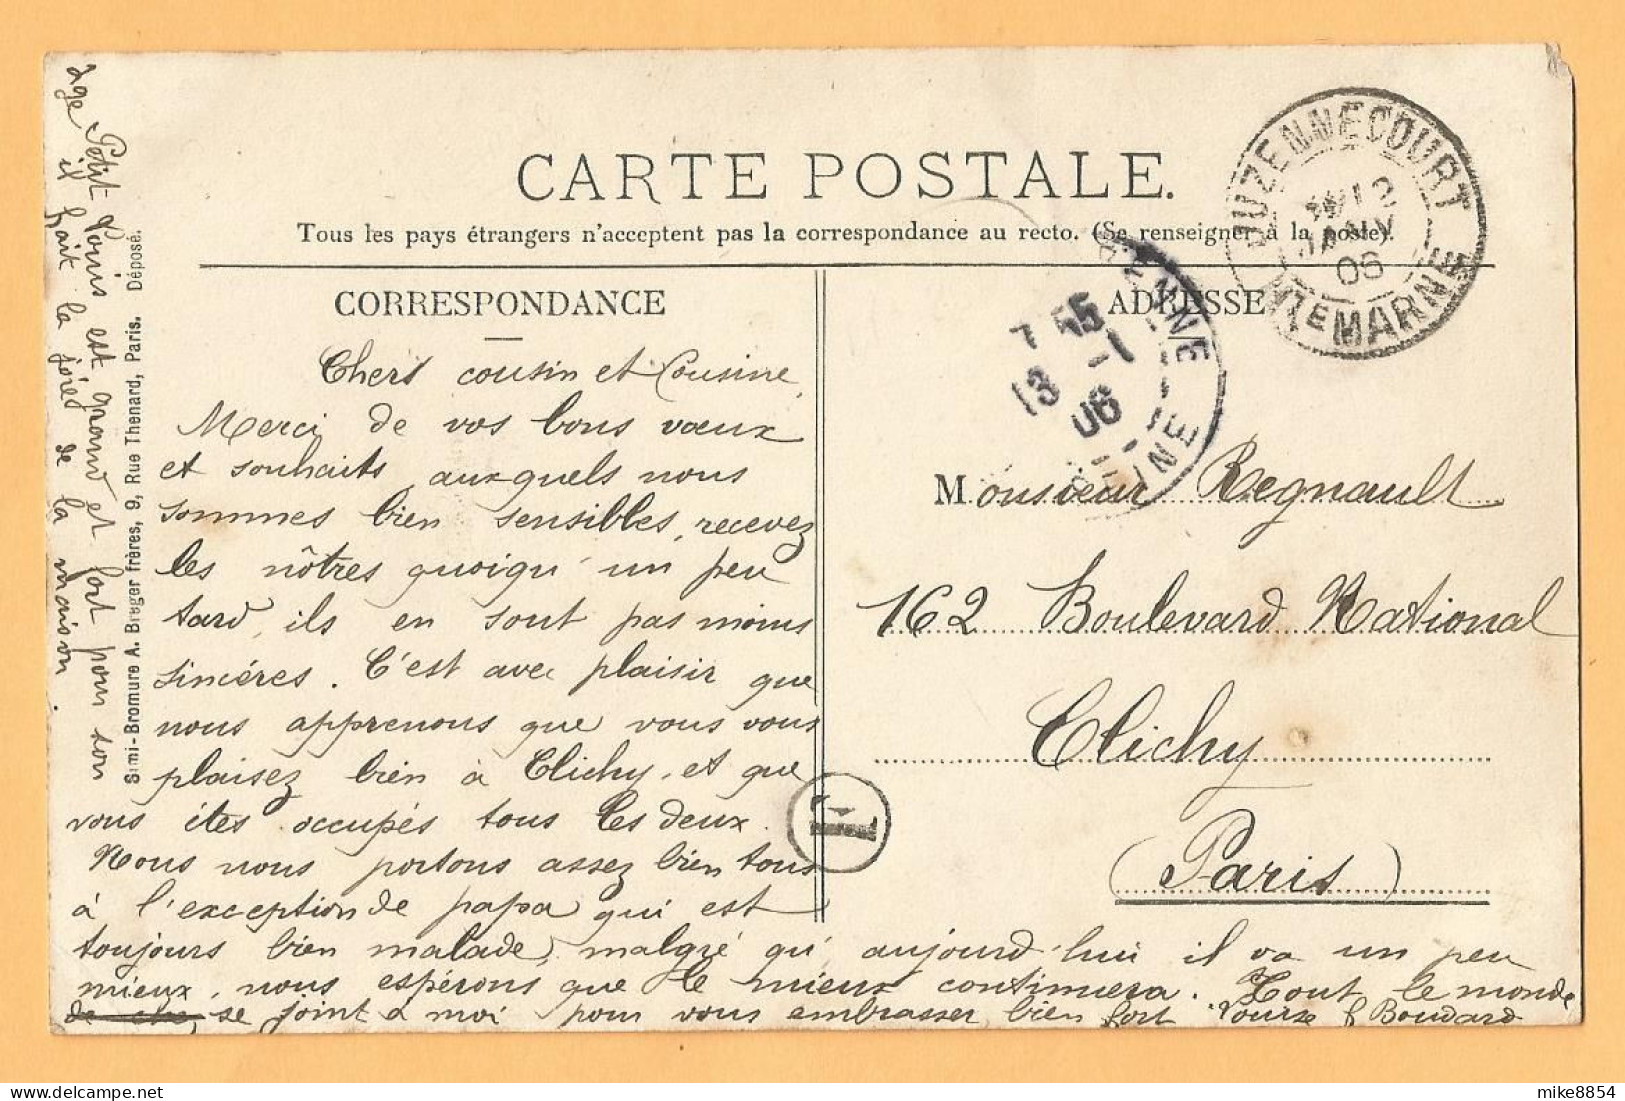 CARTE POSTALE.
Tous les pays étrangers n'acceptent pas la correspondance au recto. (Se renseigner à la poste).
CORRESPONDANCE
Chers cousin et Cousine,
Merci de vos bons vœux
et souhaits auxquels nous
sommes bien sensibles, recevez
les nôtres quoiqu'un peu
tard, ils en sont pas moins
sincéres. C'est avec plaisir que
nous apprenons que vous vous
plaisez bien à Clichy, et que
vous êtes occupés tous les deux.
Nous nous portons assez bien tous
à l'exception de papa qui est
toujours bien malade, malgré qu'aujourd'hui il va un peu
mieux, nous espérons que le mieux continuera. Tout le monde
se joint à moi pour vous embrasser bien fort Louise Boudard
Petit Louis est grand et fort pour son
age il fait la joie de la maison.
Simi-Bromure A. Breger frères, 9, Rue Thenard, Paris. Déposé.
ADRESSE
Monsieur Regnault
162 Boulevard National
Clichy
(Paris)
JUZENNECOURT
12
JANV
06
HTE MARNE
7 55
13 -1
06
GARENNE
SEINE
1
mike8854